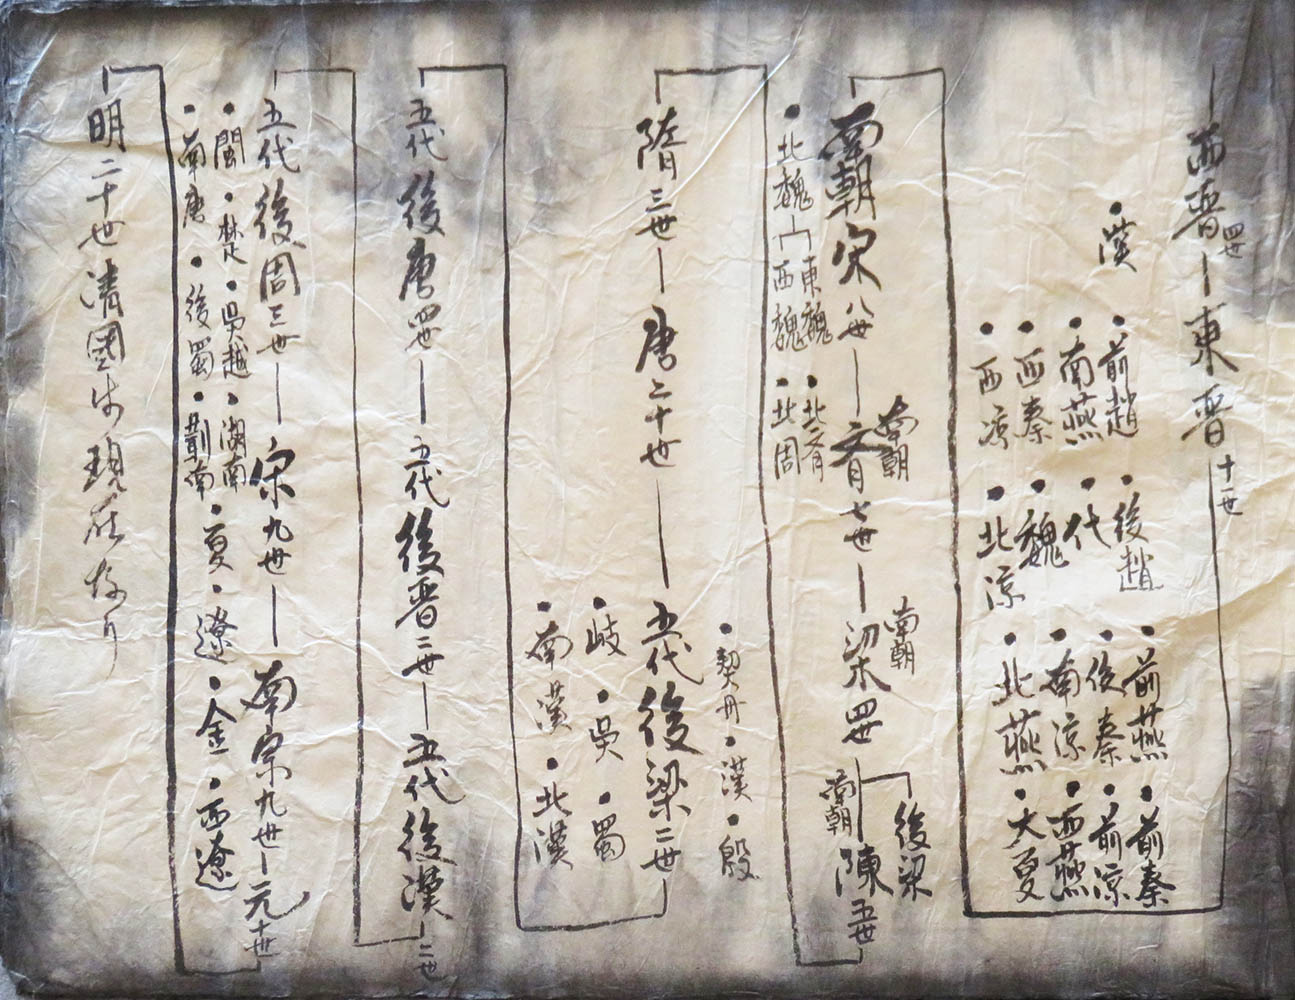 西晋四世―東晋十一世
・漢
・前趙・後趙・前燕・前秦
・南燕・代・後秦・前凉
・西秦・魏・南凉・西燕
・西凉・北凉・北燕・大夏
南朝宋八世―南朝斉七世―南朝梁四世―南朝陳五世
後梁
・北魏 東魏・北斉
西魏・北周
・契丹・漢・殷
隋三世―唐二十世―五代後梁二世
・岐・呉・蜀
・南漢・北漢
五代後唐四世―五代後晋二世―五代後漢二世
五代後周三世―宋九世―南宗九世―元十世
・閩・楚・呉越・湖南・夏・遼・金・西遼
・南唐・後蜀・荊南
明二十世清国